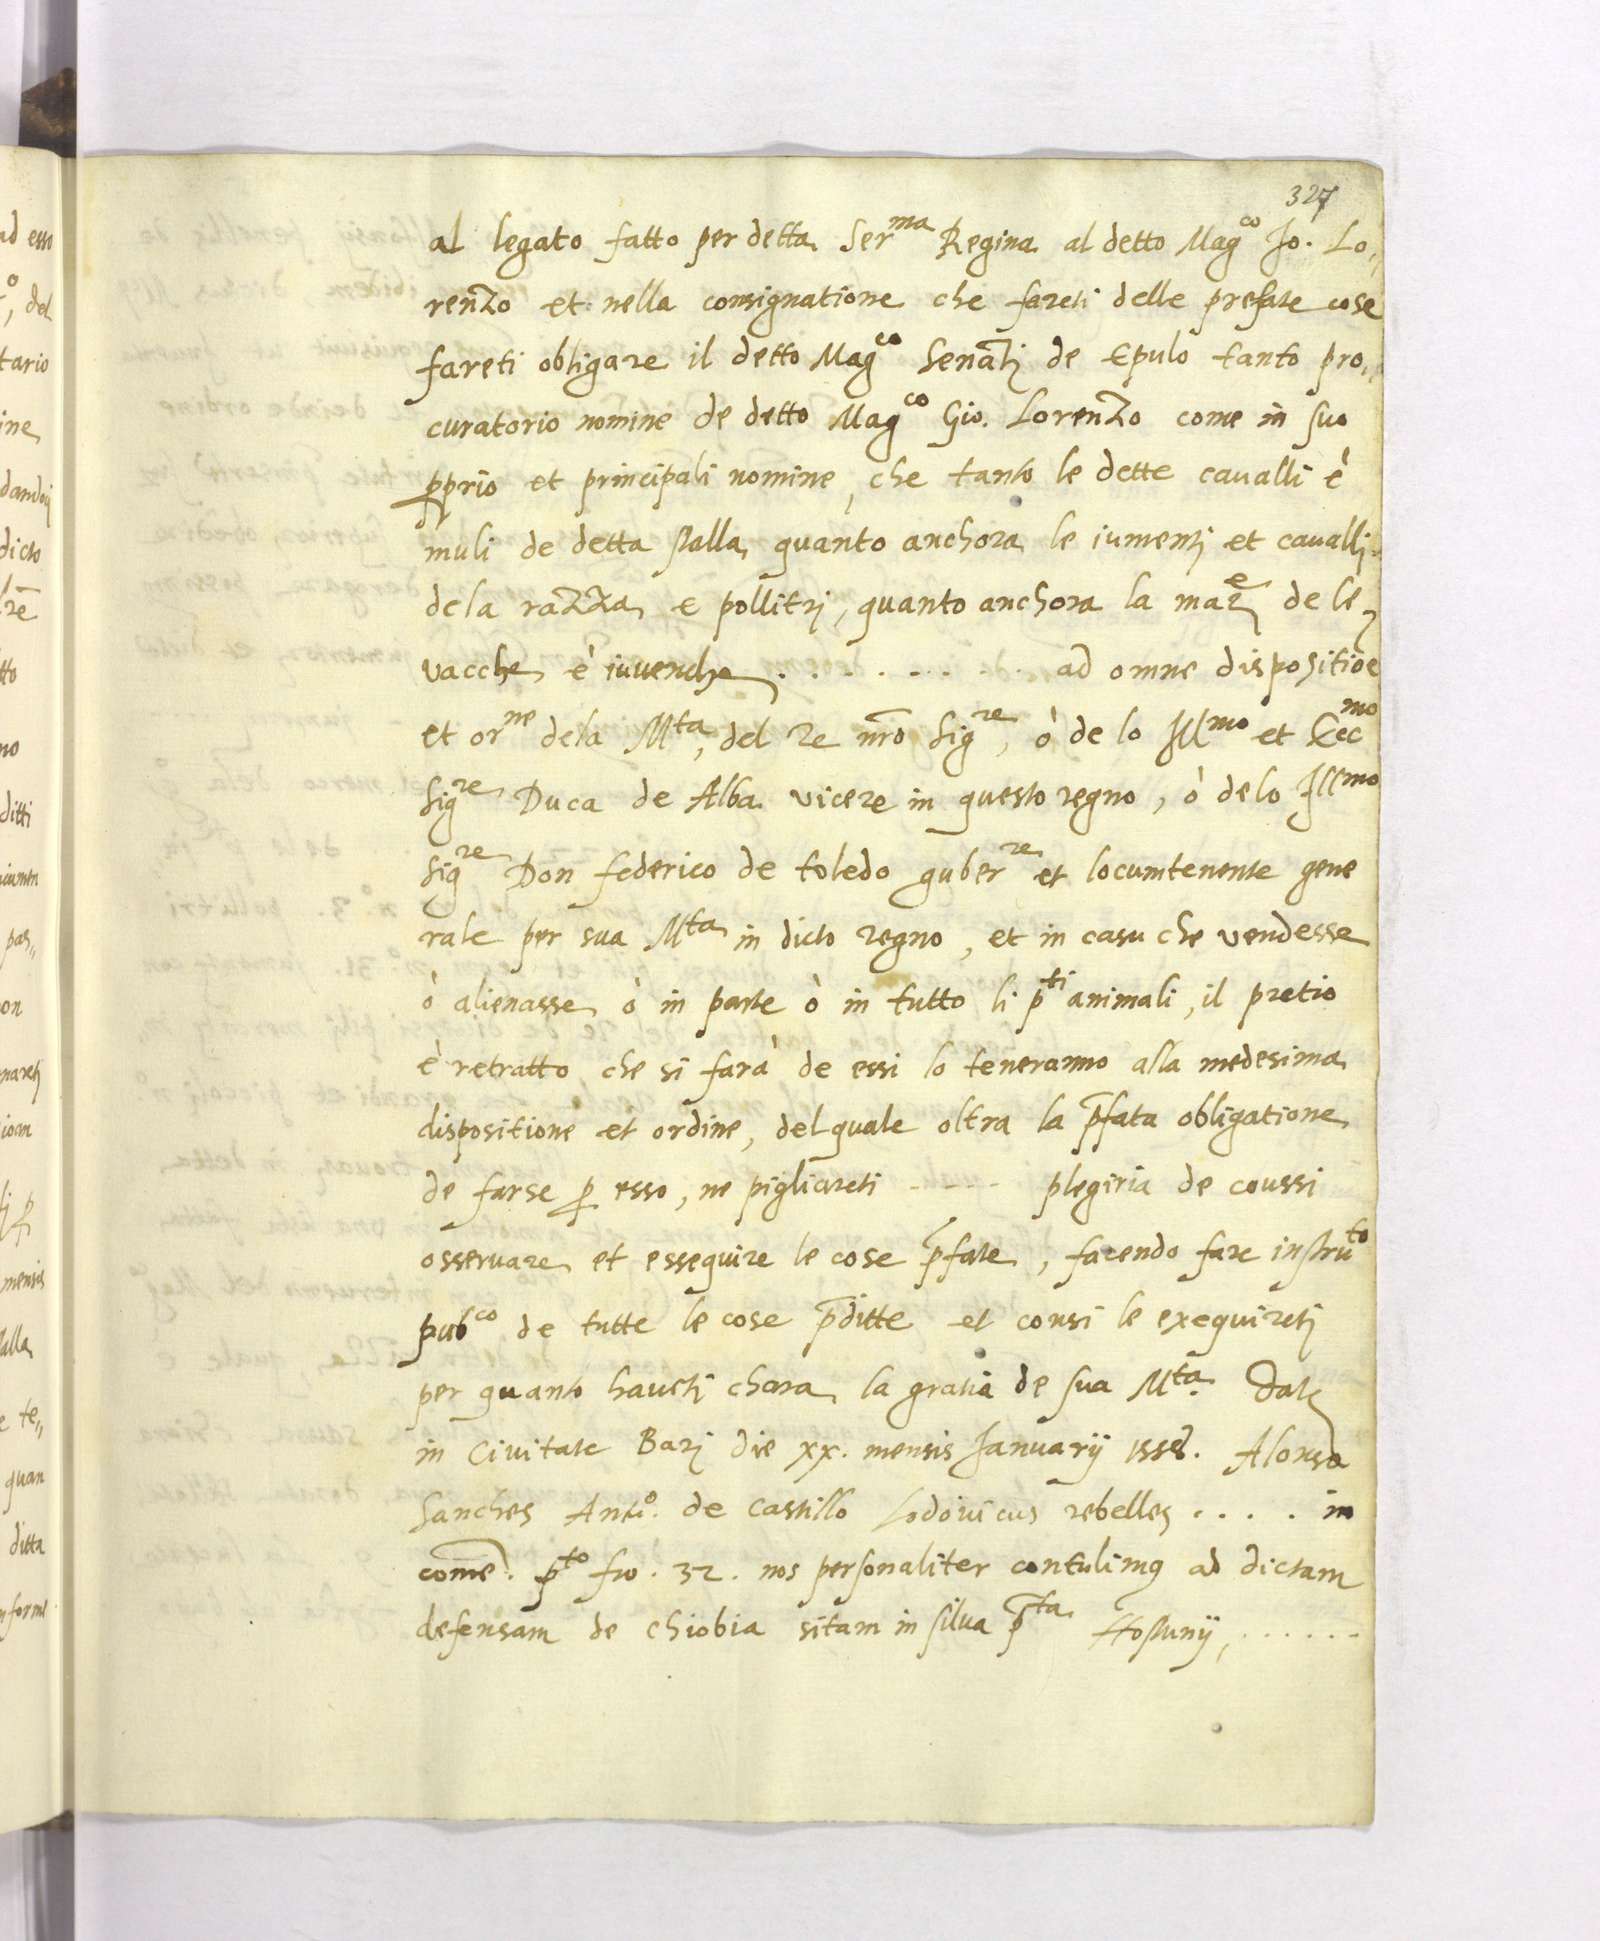 327
al legato fatto per detta Ser^ma Regina al detto Mag^co Jo. Lo„
renzo et nella consignatione che fareti delle prefate cose
fareti obligare il detto Mag^co Senatj de Epulo tanto pro„
curatorio nomine de detto Mag^co Gio. Lorenzo come in suo
pprio et principali nomine, che tanto le dette cavalli è
muli de detta stalla quanto anchora le iumentj et cavallj
dela razza e pollitrj, quanto anchora la de le
vacche è iuvenche . . . . . . . . . ad omne dispositiõe
et or^ne dela M^ta, del Re nr̃o Sig^re, ò de lo Ill^mo et Ecc^mo
Sig^re Duca de Alba vicere in questo regno, ò delo Ill^mo
Sig^re Don federico de toledo guber^re et locumtenente gene
rale per sua M^ta in dicto regno, et in casu che vendesse
ò alienasse ò in parte ò in tutto li p^ti animali, il pretio
è retratto che si farà de essi lo teneranno alla medesima
dispositione et ordine, del quale oltra la p̃fata obligatione
de farse p esso, ne pigliareti - - - - plegiria de coussi
osservare et essequire le cose p̃fate, facendo fare instru^to
pub^co de tutte le cose p̃ditte et cousi le exequiretj
per quanto havetj chara la gratia de sua M^ta. Datj
in Civitate Barj die xx. mensis Januarij 1558. Alonso
Sanches Ant^o. de Castillo Lodovicus rebelles . . . . in
come. p^to fro. 32. nos personaliter contulimq ad dictam
defensam de chiobia sitam in silva p̃^ta Hostunij, . . . . . .
ad esso
, del
tario
ine
dicto
tto
no
ditti
pas„
on
mensis
e te„
quan
ditta